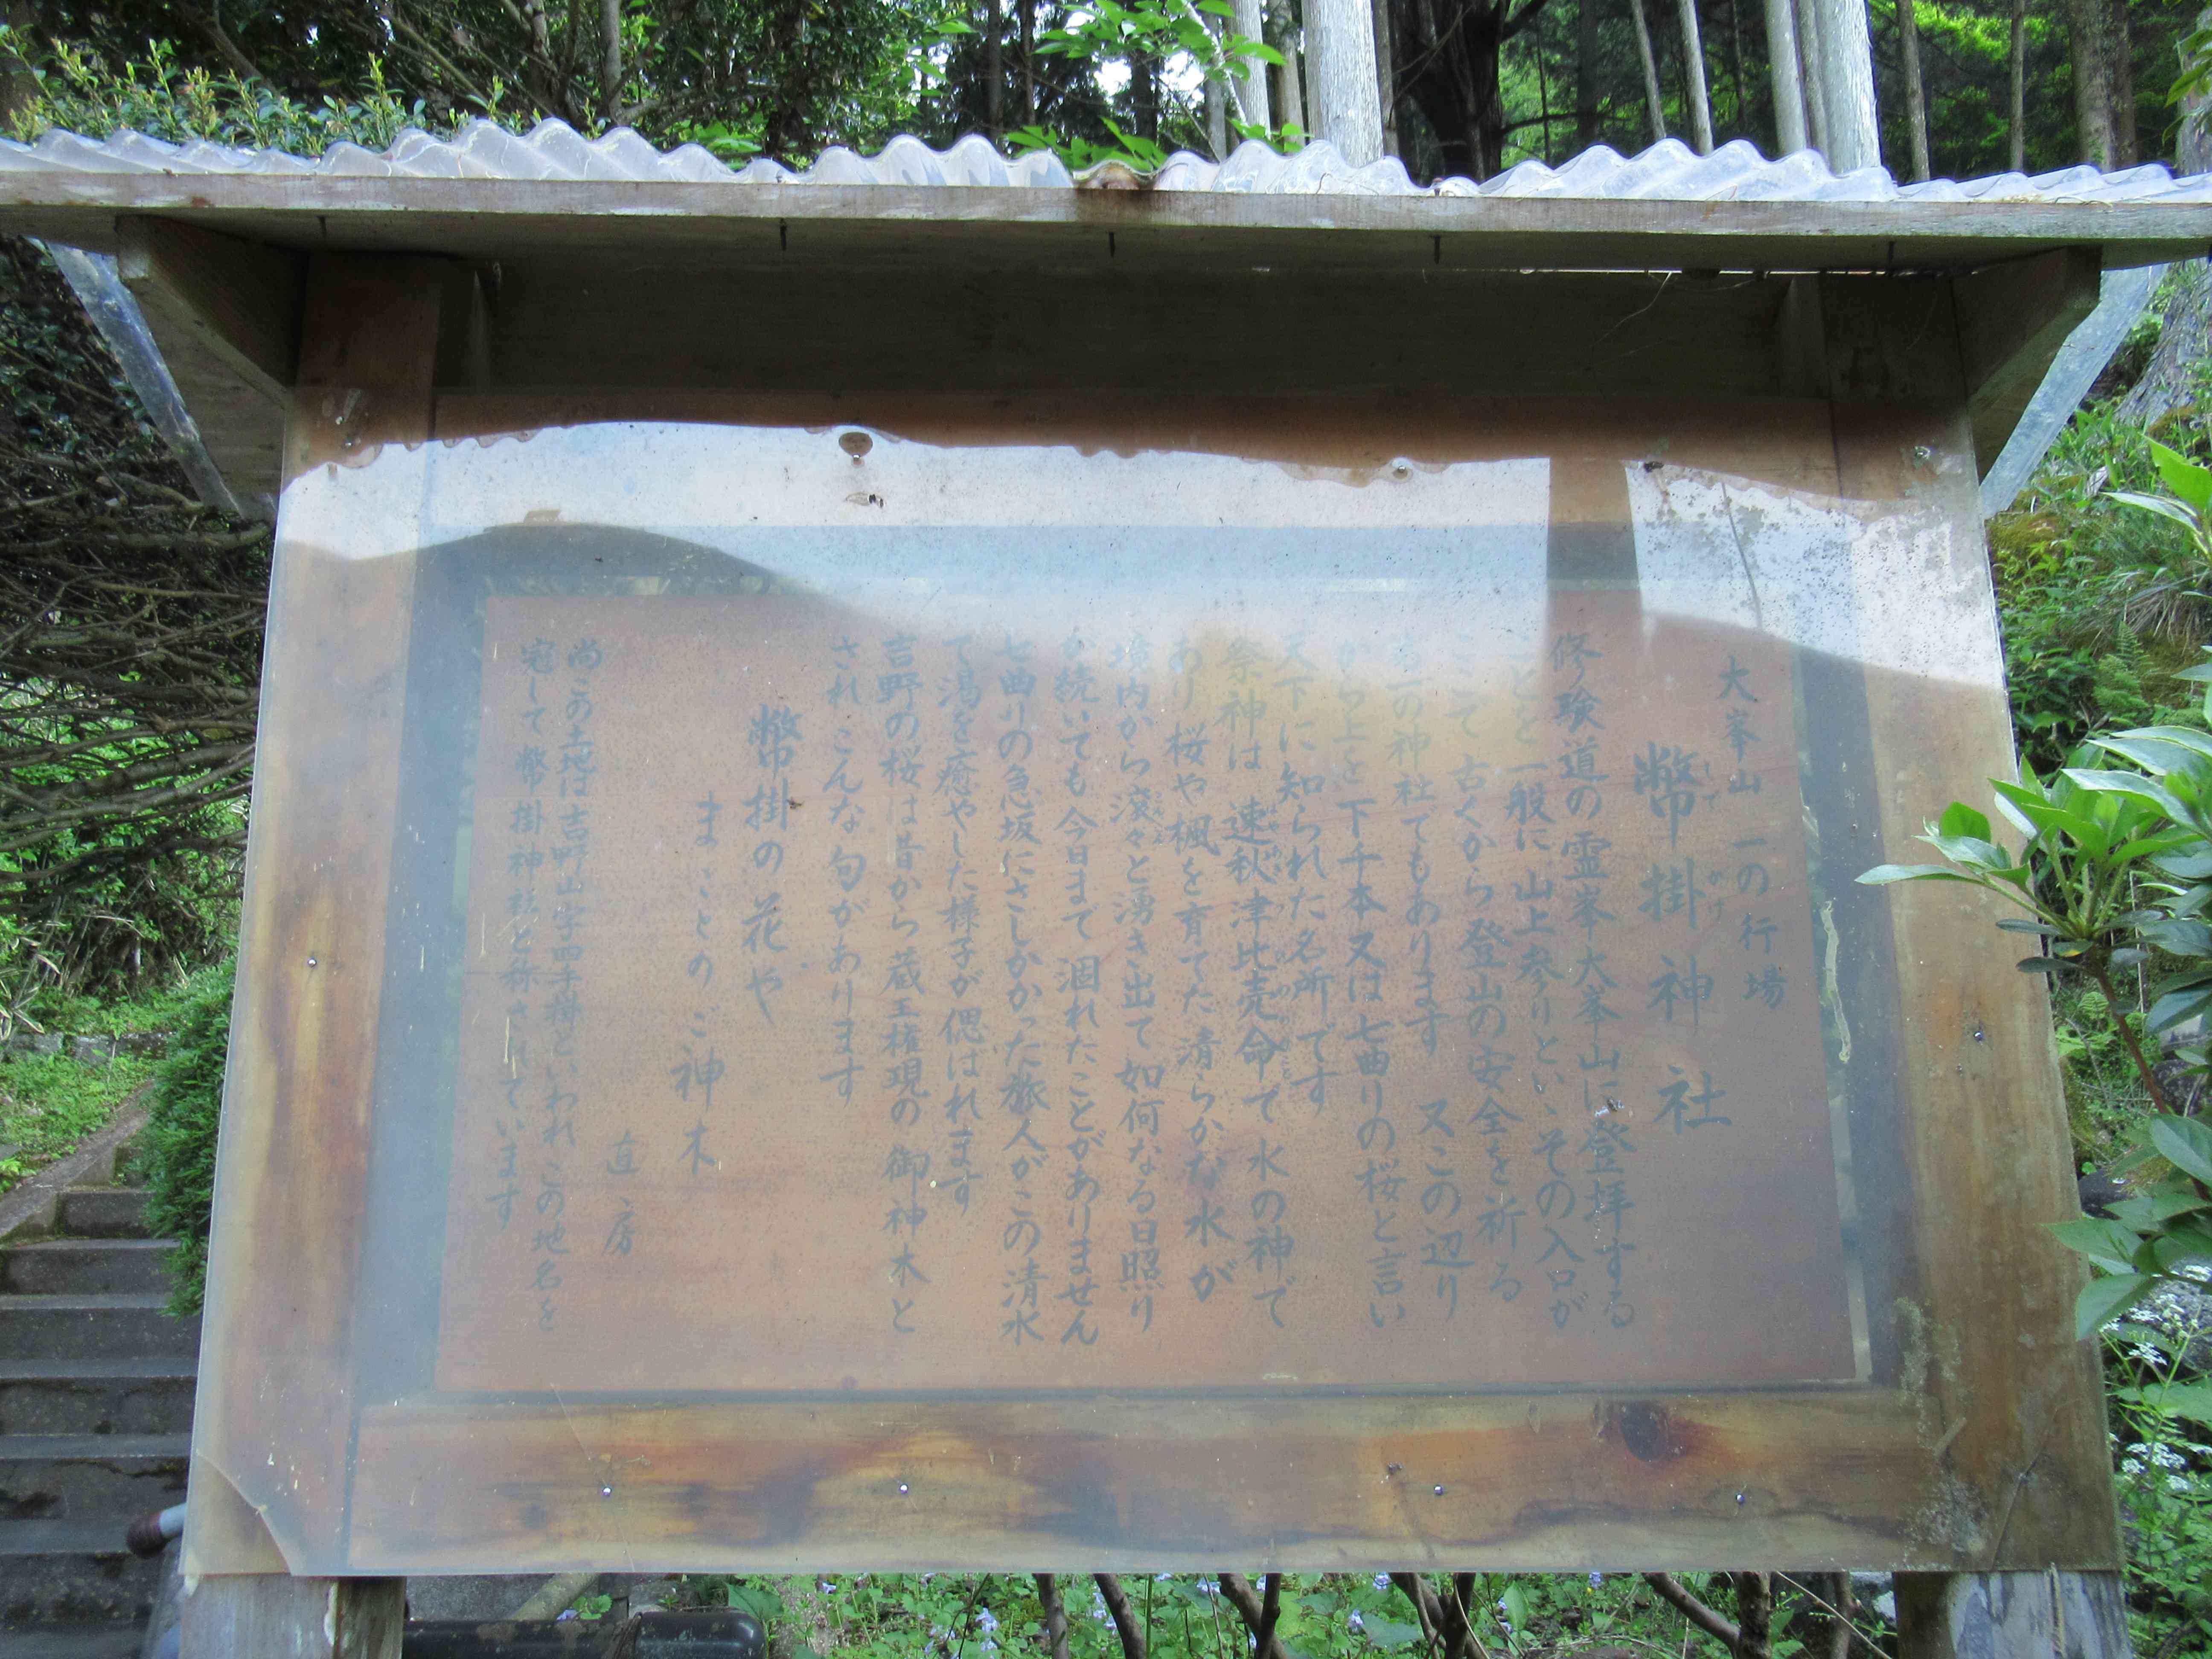 大峯山 一の行場
幣掛神社
しで かけ
修験道の霊峯大峯山に登拝する
ことを一般に山上参りといゝその入口が
ここで古くから登山の安全を祈る
第一の神社でもあります 又この辺り
から上を下千本又は七曲りの桜と言い
天下に知られた名所です
祭神は 速秋津比売命で水の神で
あり桜や楓を育てた清らかな水が
境内から滾々と湧き出て如何なる日照り
が続いても今日まで涸れたことがありません
七曲りの急坂にさしかかった旅人がこの清水
で渇を癒やした様子が偲ばれます
吉野の桜は昔から蔵王権現の御神木と
され こんな句があります
幣掛の花や
まことのご神木
直房
尚この土地は吉野山字四手掛といわれこの地名を
冠して幣掛神社と称されています